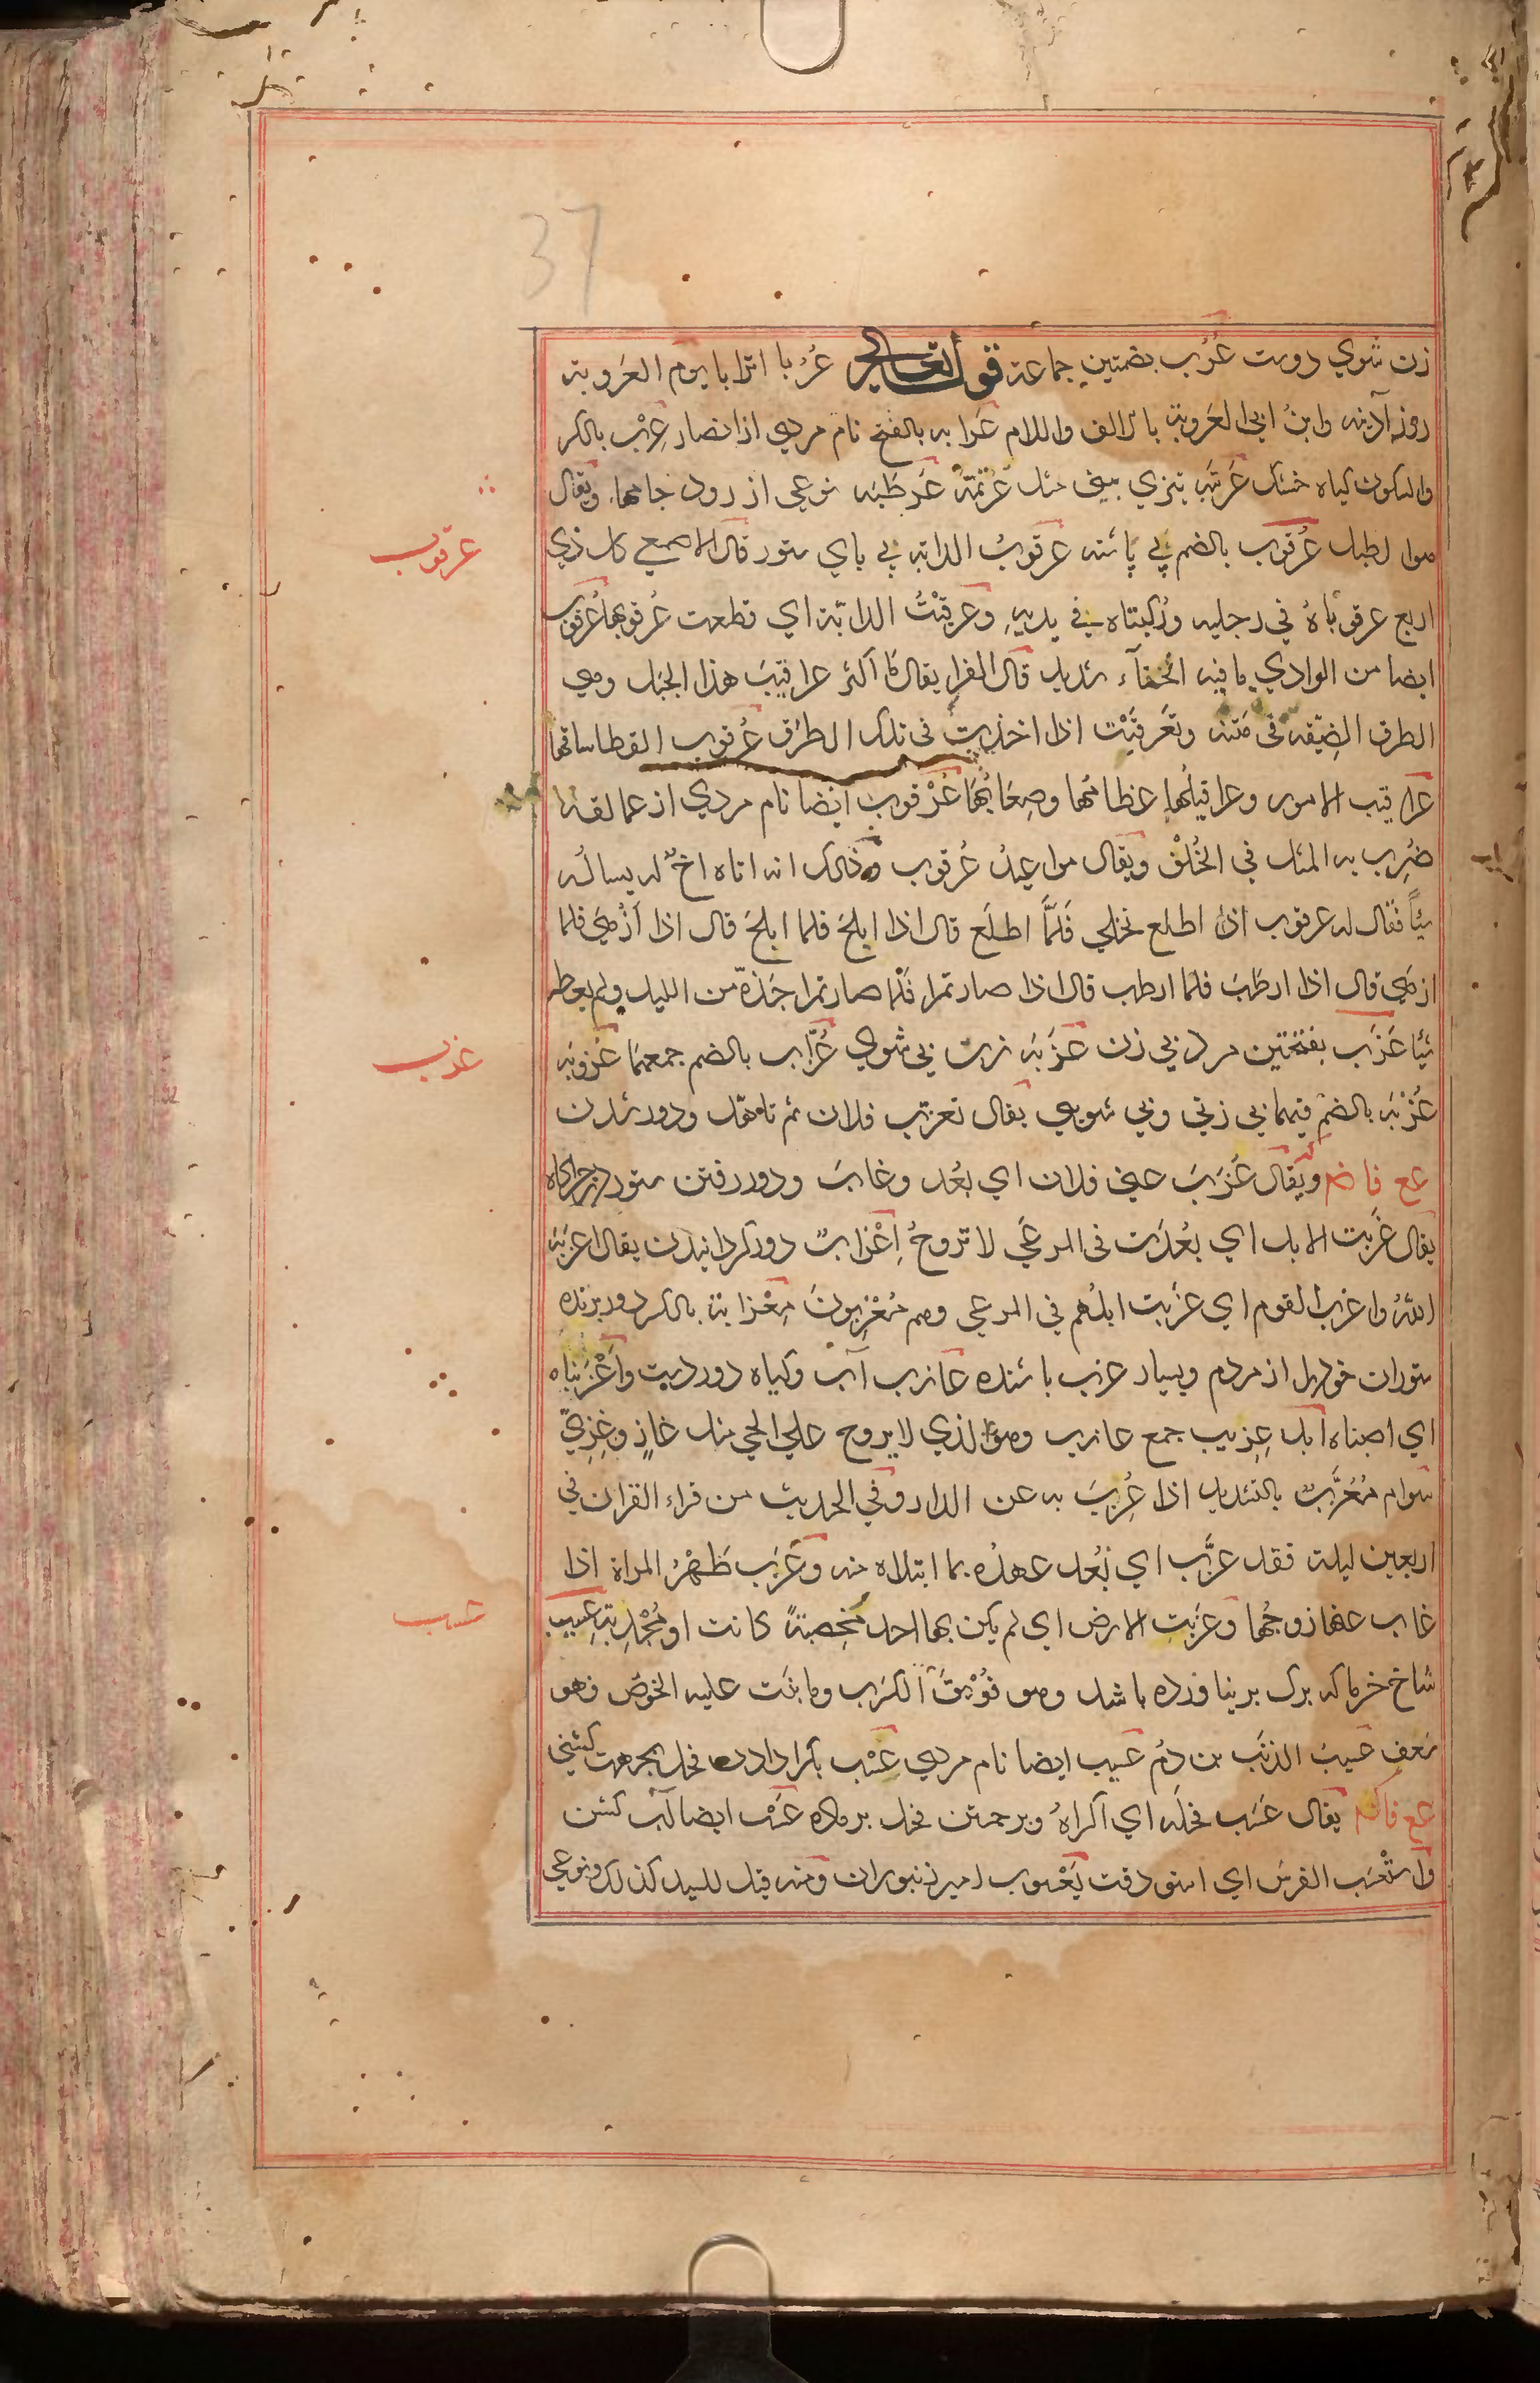 37
زن شوي دوست عُرُب بضمتين جماعة قوله تعالى عُرُبا اترابا يوم العَروبة
روز آدينه وابنُ ابي العَروبة بالالف واللام عَرابه بالفتح نام مردي از انصار عِرْب بالكسر
والسكون كياه خشك عَرتَبه تيزي بيني مثل عَرتَمَة عَرطَبَه نوعي از رود جامها ويقال
هوا لطبل عُرقوب بالضم پي پاشنه عرقوبُ الدابه پي پاي ستور قال الاصمعي كل ذي
اربع عرقوباهُ في رجليه ورُكبتاه في يديهِ وعَرقَبْتُ الدابّة اي قطعت عُرقوبها عُرقوب
ايضا من الوادي ما فيه انحناء شديد قال الفرا يقال ما أكثر عراقيبَ هذا الجبل وهي
الطرق الضيّقة في مَتنه وتَعَرقَبْت اذا اخذت في تلك الطرُق عُرقوب القطا ساقها
عراقيب الامور وعراقيلُها عظامُها وصِعَابُها عُرْقوب ايضا نام مردي از عمالقه
ضُرِب به المثل في الخُلْف ويقال مواعيدُ عُرقوب وذلك انه اتاه اخٌ له يسالُه
شيأً فقال له عرقوب اذا اطلع نخلي فَلَمَّا اطلَع قال اذا ابلحَ فلما ابلحَ قال اذا أزهَى فلما
ازهَى قال اذا ارطَبَ فلما ارطب قال اذا صار تمرا فلما صار تمرا جَذّه من الليل ولم يعطه
شيئا عَزَب بفتحتين مرد بي زن عَزَبَه زن بي شوي عُزَّاب بالضم جمعهما عُزوبَه
عُزْبَه بالضم فيهما بي زني وبي شويي يقال تعزّب فلان ثم تاهّل ودور شدن
مع فا ضم ويقال عَزَبَ عني فلان اي بَعُد وغابَ ودور رفتن ستور در چراگاه
يقال عَزَبت الابل اي بعُدَت في المرعَى لا تروحُ اِعْزابٌ دور كردانيدن يقال اعزَبَه
اللهُ واعزب القوم اي عزَبت ابلُهم في المرعي وهم مُعْزِبونَ مِعْزابة بالكسر دور برنده
ستوران خودرا از مردم وبسيار عزب باشنده عازب آب وكياه دور دست وأعْزَبناه
اي اصبناه ابل عِزيب جمع عازب وهو الذي لا يروح علي الحي مثل غازٍ وغَزِيّ
سوام مُعَزَّب بالتشديد اذا عُزِبَ به عن الدار وفي الحديث من قراء القران في
اربعين ليلة فقد عزَّب اي بَعُد عهدُه بما ابتداه منه وعَزَب طَهْرُ المراة اذا
غاب عنها زوجُها وعزَبتِ الارض اي لم يكن بها احد مُخصِبَةً كانت او مُجْدِبَة عَسِيب
شاخ خرما كه برك بر نياورده باشد وهو فُوَيْقَ الكَرَب وما نبَت عليه الخوصُ فهو
سَعَف عسيبُ الذنَب بن دُم عسيب ايضا نام مردي عَسْب بكرا دادن فحل بجهت كشني
مع فا كسر يقال عَسَب فحلَه اي أكراهُ وبرجستن فحل بر ماده عَسْب ايضا آب كشن
واسْتَعسَب الفرس اي استودقت يَعْسوب امير زنبوران ومنه قيل للسيد كذلك ونوعي
عرقوب
عزب
عسب